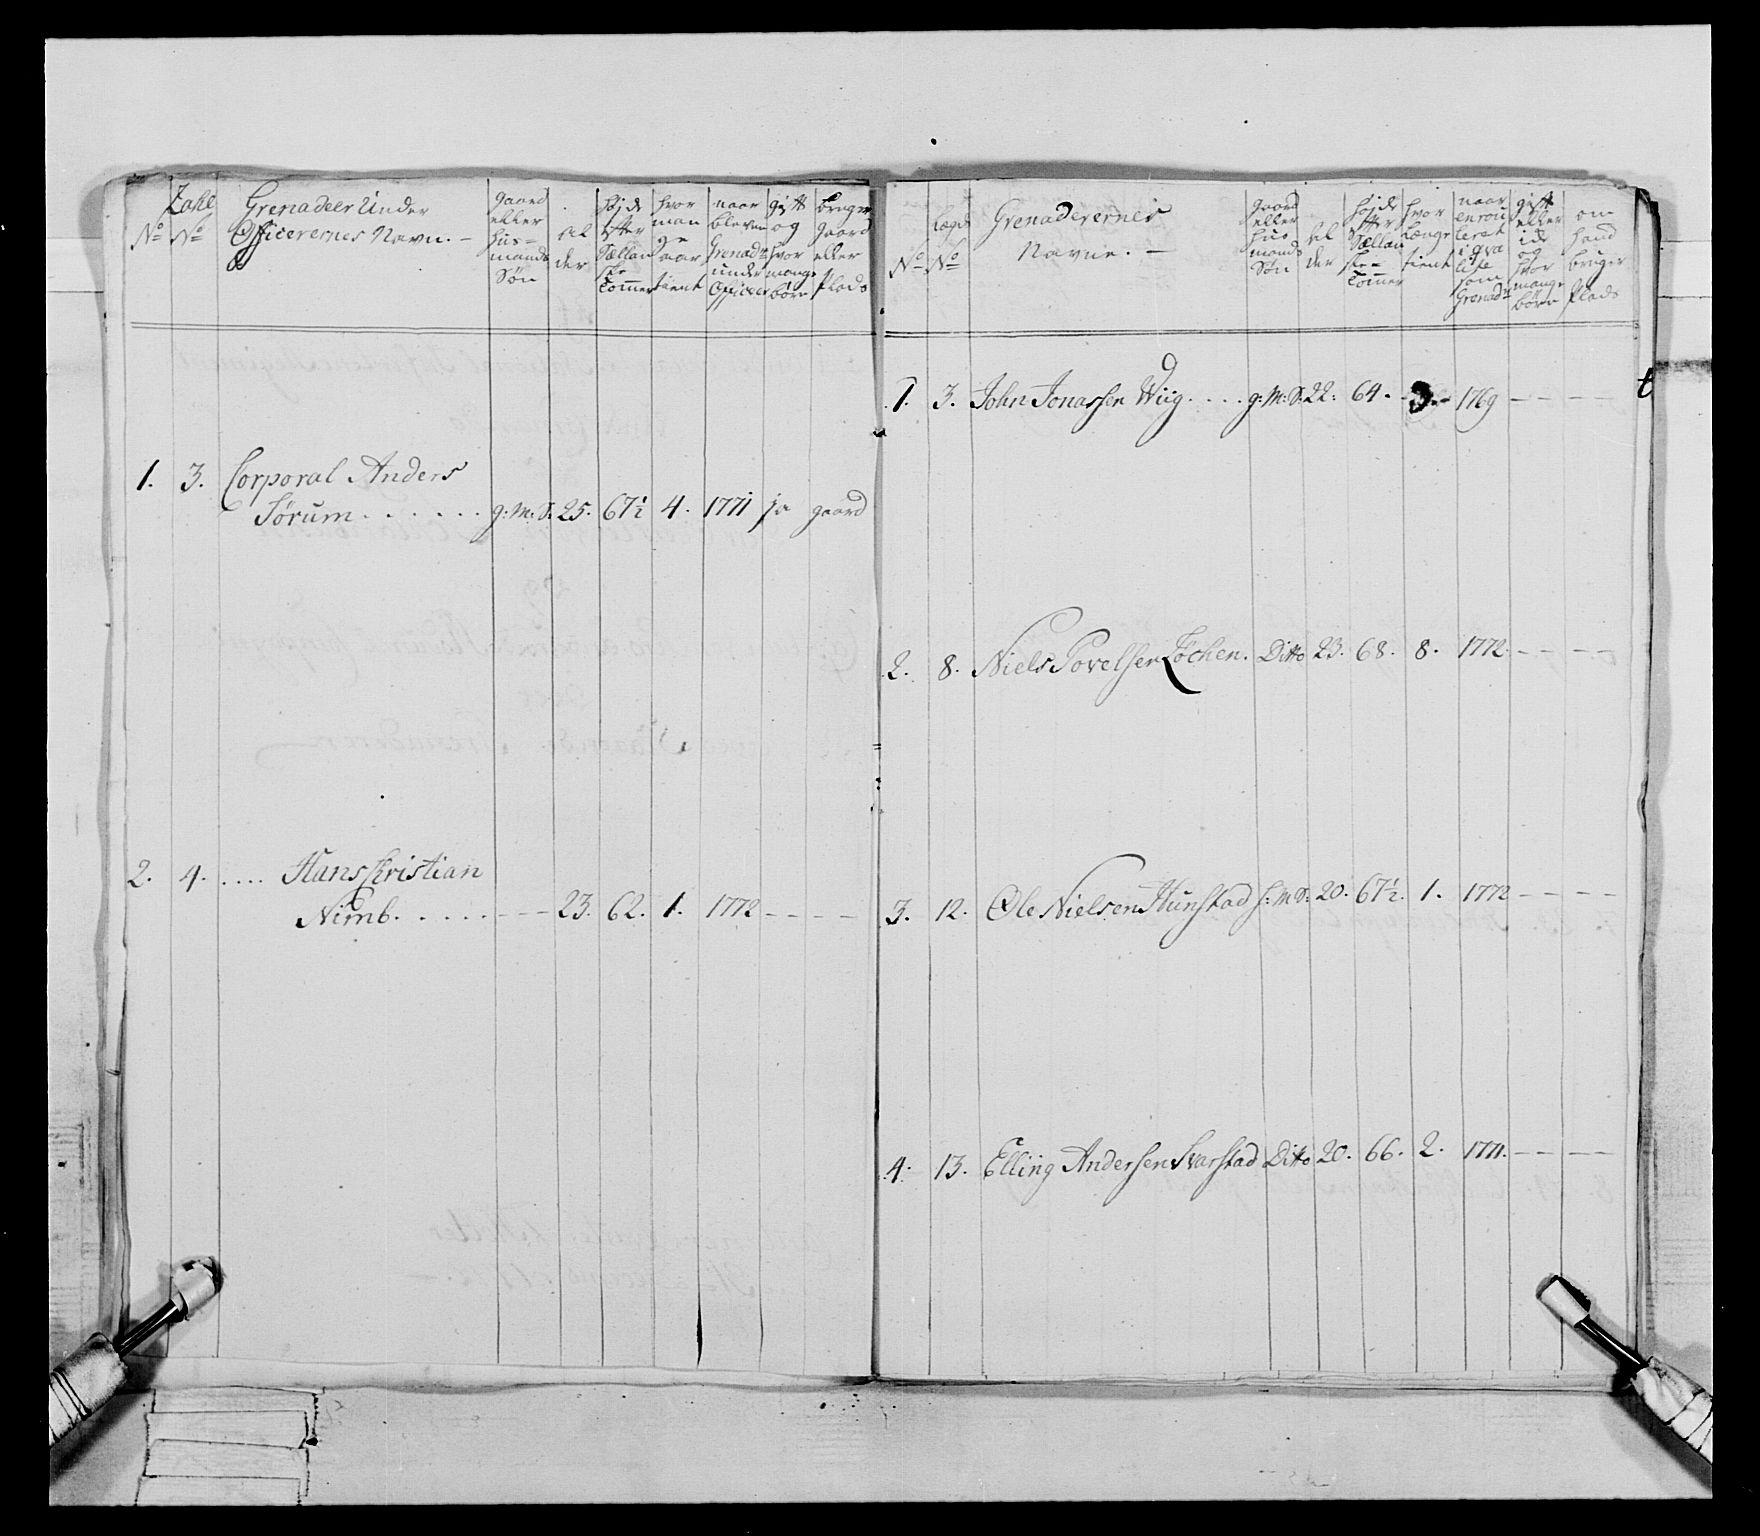 Zahl
No No
Grenadeer Under
Officerernes Navn. –
gaard
eller
hus-
mands
Søn
al
der
højde
efter
Sællan
ske
tommer
hvor
man
ge
aar
tient
naar
bleven
Grenadr
under
Officeer
gift
og
hvor
mange
børn
bruger
gaard
eller
Plads
1. 3. Corporal Anders
Sørum. . . . . . g: M: S: 25. 67½ 4. 1771 ja gaard
2. 4. . . . . Hans Christian
Nimb. . . . . . – – – 23. 62. 1. 1772 – – – –
lægd
No No
Grenaderernes
Navne. –
gaard
eller
hus
mands
Søn
al
der
højde
efter
Sællan
ske-
tommer
hvor
længe
tient
naar
enrou
leret
i qva
lite
som
Grenadr
gift
eller
ide
og
hvor
mange
børn
om
hand
bruger
Plads
1. 3. John Jonassen Wiig. . . . g: M: S: 22. 64. – 3. – 1769 – – – –
2. 8. Niels Povelsen Løchen. Ditto 23. 68. 8. 1772 – – – –
3. 12. Ole Nielsen Hunstad h: M S: 20. 67½. 1. 1772 – – – –
4. 13. Elling Andersen Svarstad Ditto 20. 66. 2. 1771. – – – –